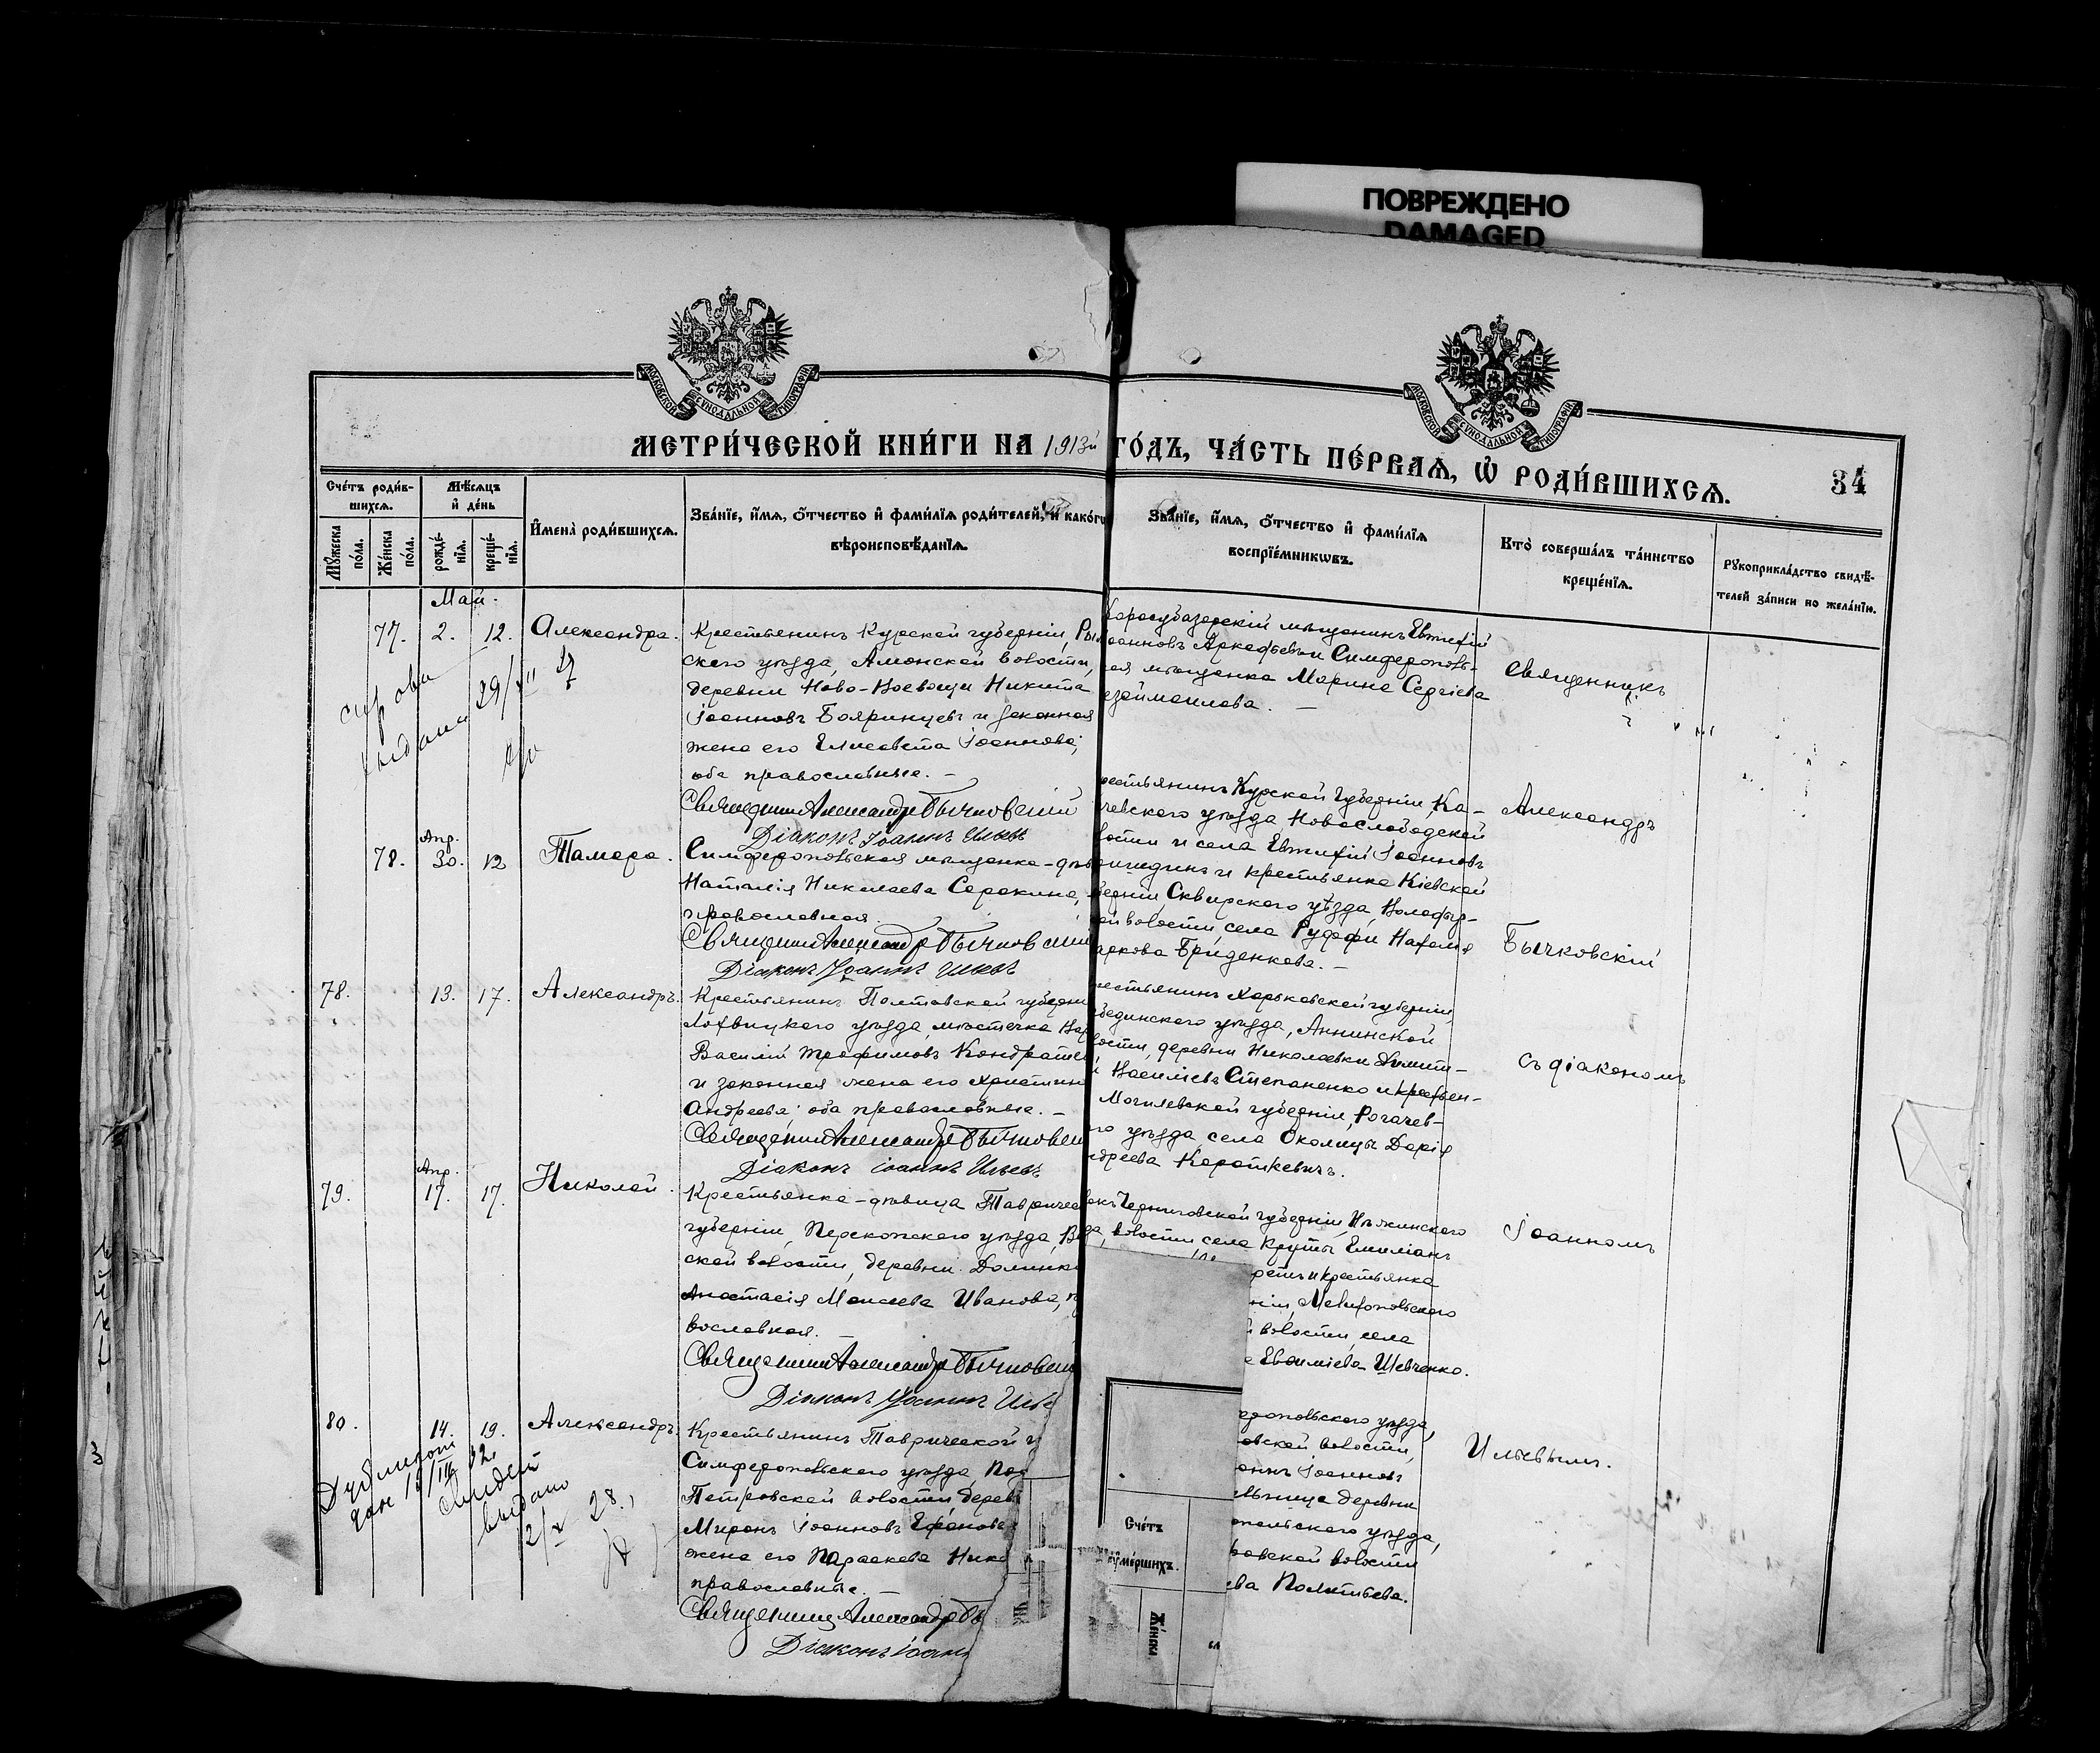 ПОВРЕЖДЕНО
DAMAGED
МОСКОВСКОЙ СУНОДАЛЬНОЙ ТИПОГРАФІИ
МОСКОВСКОЙ СУНОДАЛЬНОЙ ТИПОГРАФІИ
МЕТРИ́ЧЕСКОЙ КНИ́ГИ НА 1913й ГО́ДЪ, ЧА́СТЬ ПЕ́РВАѦ, Ѡ҆ РОДИ́ВШИХСѦ.
34
Сче́тъ роди́в-
шихсѧ.
Мꙋ́жеска по́ла.
Же́нска по́ла.
Мѣ́сѧцъ
и҆ де́нь
рожде́-
нїѧ.
креще́-
нїѧ.
И҆мена̀ роди́вшихсѧ.
Зва́нїе, и҆́мѧ, ѻ҆́тчество и҆ фами́лїѧ роди́телей, и҆ како́гѡ
вѣроисповѣ́данїѧ.
Зва́нїе, и҆́мѧ, ѻ҆́тчество и҆ фами́лїѧ
воспрїе́мникѡвъ.
Кто̀ соверша́лъ та́инство
креще́нїѧ.
Рꙋкоприкла́дство свидѣ́-
телей за́писи по жела́нїю.
Май.
77. 2. 12. Александра.
Крестьянинъ Курской губерніи, Рыл
ского уѣзда, Амонской волости,
деревни Ново-
Никита
Іоанновъ Бояринцевъ и законная
жена его Елисавета Іоаннова;
оба православные. –
Священникъ Александръ Бычковскій
Діаконъ Іоаннъ Ильевъ
Карасубазарскій мѣщанинъ Евтихій
оанновъ и Симферополь-
ая мѣщанка Марина Сергіева
езайманлова. –
29/VII
78. Апр. 30. 12 Тамара.
Симферопольская мѣщанка-дѣв
Наталія Николаева Сорокина,
православная.
Священникъ Александръ Бычковскій
Діаконъ Іоаннъ Ильевъ
рестьянинъ Курской губерніи, Ка-
чевского уѣзда Новослободской
лости и села Евтихій Іоанновъ
и крестьянка Кіевской
берніи, Сквирского уѣзда,
ой волости, села Наталія
аркова Бриденкова. –
78. 13. 17. Александръ.
Крестьянинъ Полтавской губерни
Лохвицкого уѣзда, мѣстечка
Василій Трофимовъ Кондрате
и законная жена его Христин
Андреева; оба православные. –
Священникъ Александръ Бычковск
Діаконъ Іоаннъ Ильевъ
рестьянинъ Харьковской губерніи,
бединского уѣзда, Аннинской
лости, деревни Николаевки Димит-
й Васильевъ Степаненко и
Могилевской губерніи, Рогачев-
го уѣзда села Околицы Дарія
ндреева Короткевичъ.
79. Апр. 17. 17. Николай.
Крестьянка-дѣвица Тавричес
губерніи, Перекопского уѣзда,
ской волости, деревни Долинки
Анастасія Моисеева Иванова, п
вославная. –
Священникъ Александръ Бычковск
Діаконъ Іоаннъ Илье
Черниговской губерніи, Нѣжинского
да, волости села Круты Емиліанъ
и крестьянка
ніи, Мелитопольского
й волости, села
Шевченко.
80. 14. 19. Александръ.
Крестьянинъ Таврической г
Симферопольского уѣзда,
Петровской волости, дерев
Миронъ Іоанновъ
жена его Параскева Нико
православные. –
Священникъ Александръ Б
Діаконъ Іоан
еропольского уѣзда,
овской волости,
Іоаннов
деревни
опольского уѣзда,
ровской волости
ева
Священникъ
Александръ
Бычковскій
съ діакономъ
Іоанномъ
Ильевымъ.
Сче́тъ
ᲂу҆ме́ршихъ.
Же́нска